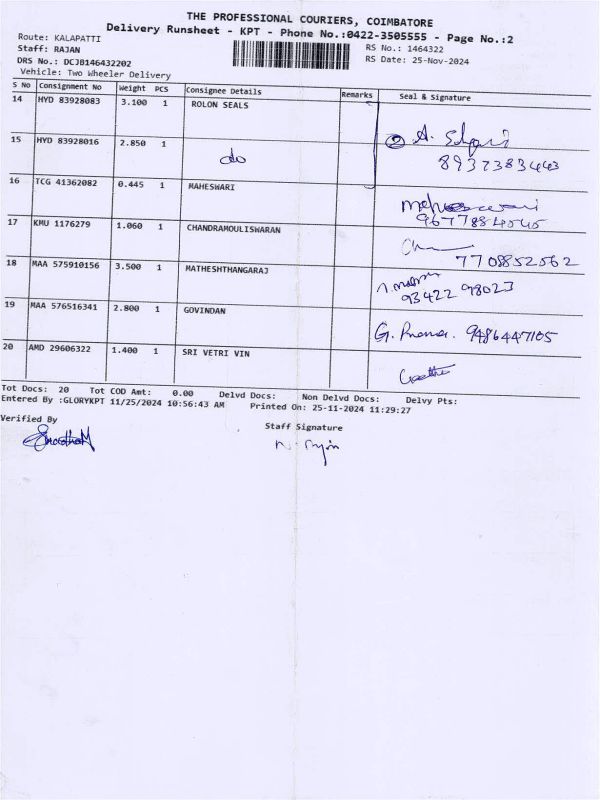 THE PROFESSIONAL COURIERS, COIMBATORE
Delivery Runsheet - KPT - Phone No.:0422-3505555 - Page No.:2
Route: KALAPATTI
Staff: RAJAN
RS No.: 1464322
DRS No.: DCJB146432202
RS Date: 25-Nov-2024
Vehicle: Two Wheeler Delivery
S No Consignment No Weight PCS Consignee Details Remarks Seal & Signature
14 HYD 83928083 3.100 1 ROLON SEALS
15 HYD 83928016 2.850 1 do
8937383443
16 TCG 41362082 0.445 1 MAHESWARI
9677884545
17 KMU 1176279 1.060 1 CHANDRAMOULISWARAN
7708852562
18 MAA 575910156 3.500 1 MATHESHTHANGARAJ
93422 98023
19 MAA 576516341 2.800 1 GOVINDAN
9486447105
20 AMD 29606322 1.400 1 SRI VETRI VIN
Tot Docs: 20 Tot COD Amt: 0.00 Delvd Docs: Non Delvd Docs: Delvy Pts:
Entered By :GLORYKPT 11/25/2024 10:56:43 AM Printed On: 25-11-2024 11:29:27
Verified By
Staff Signature